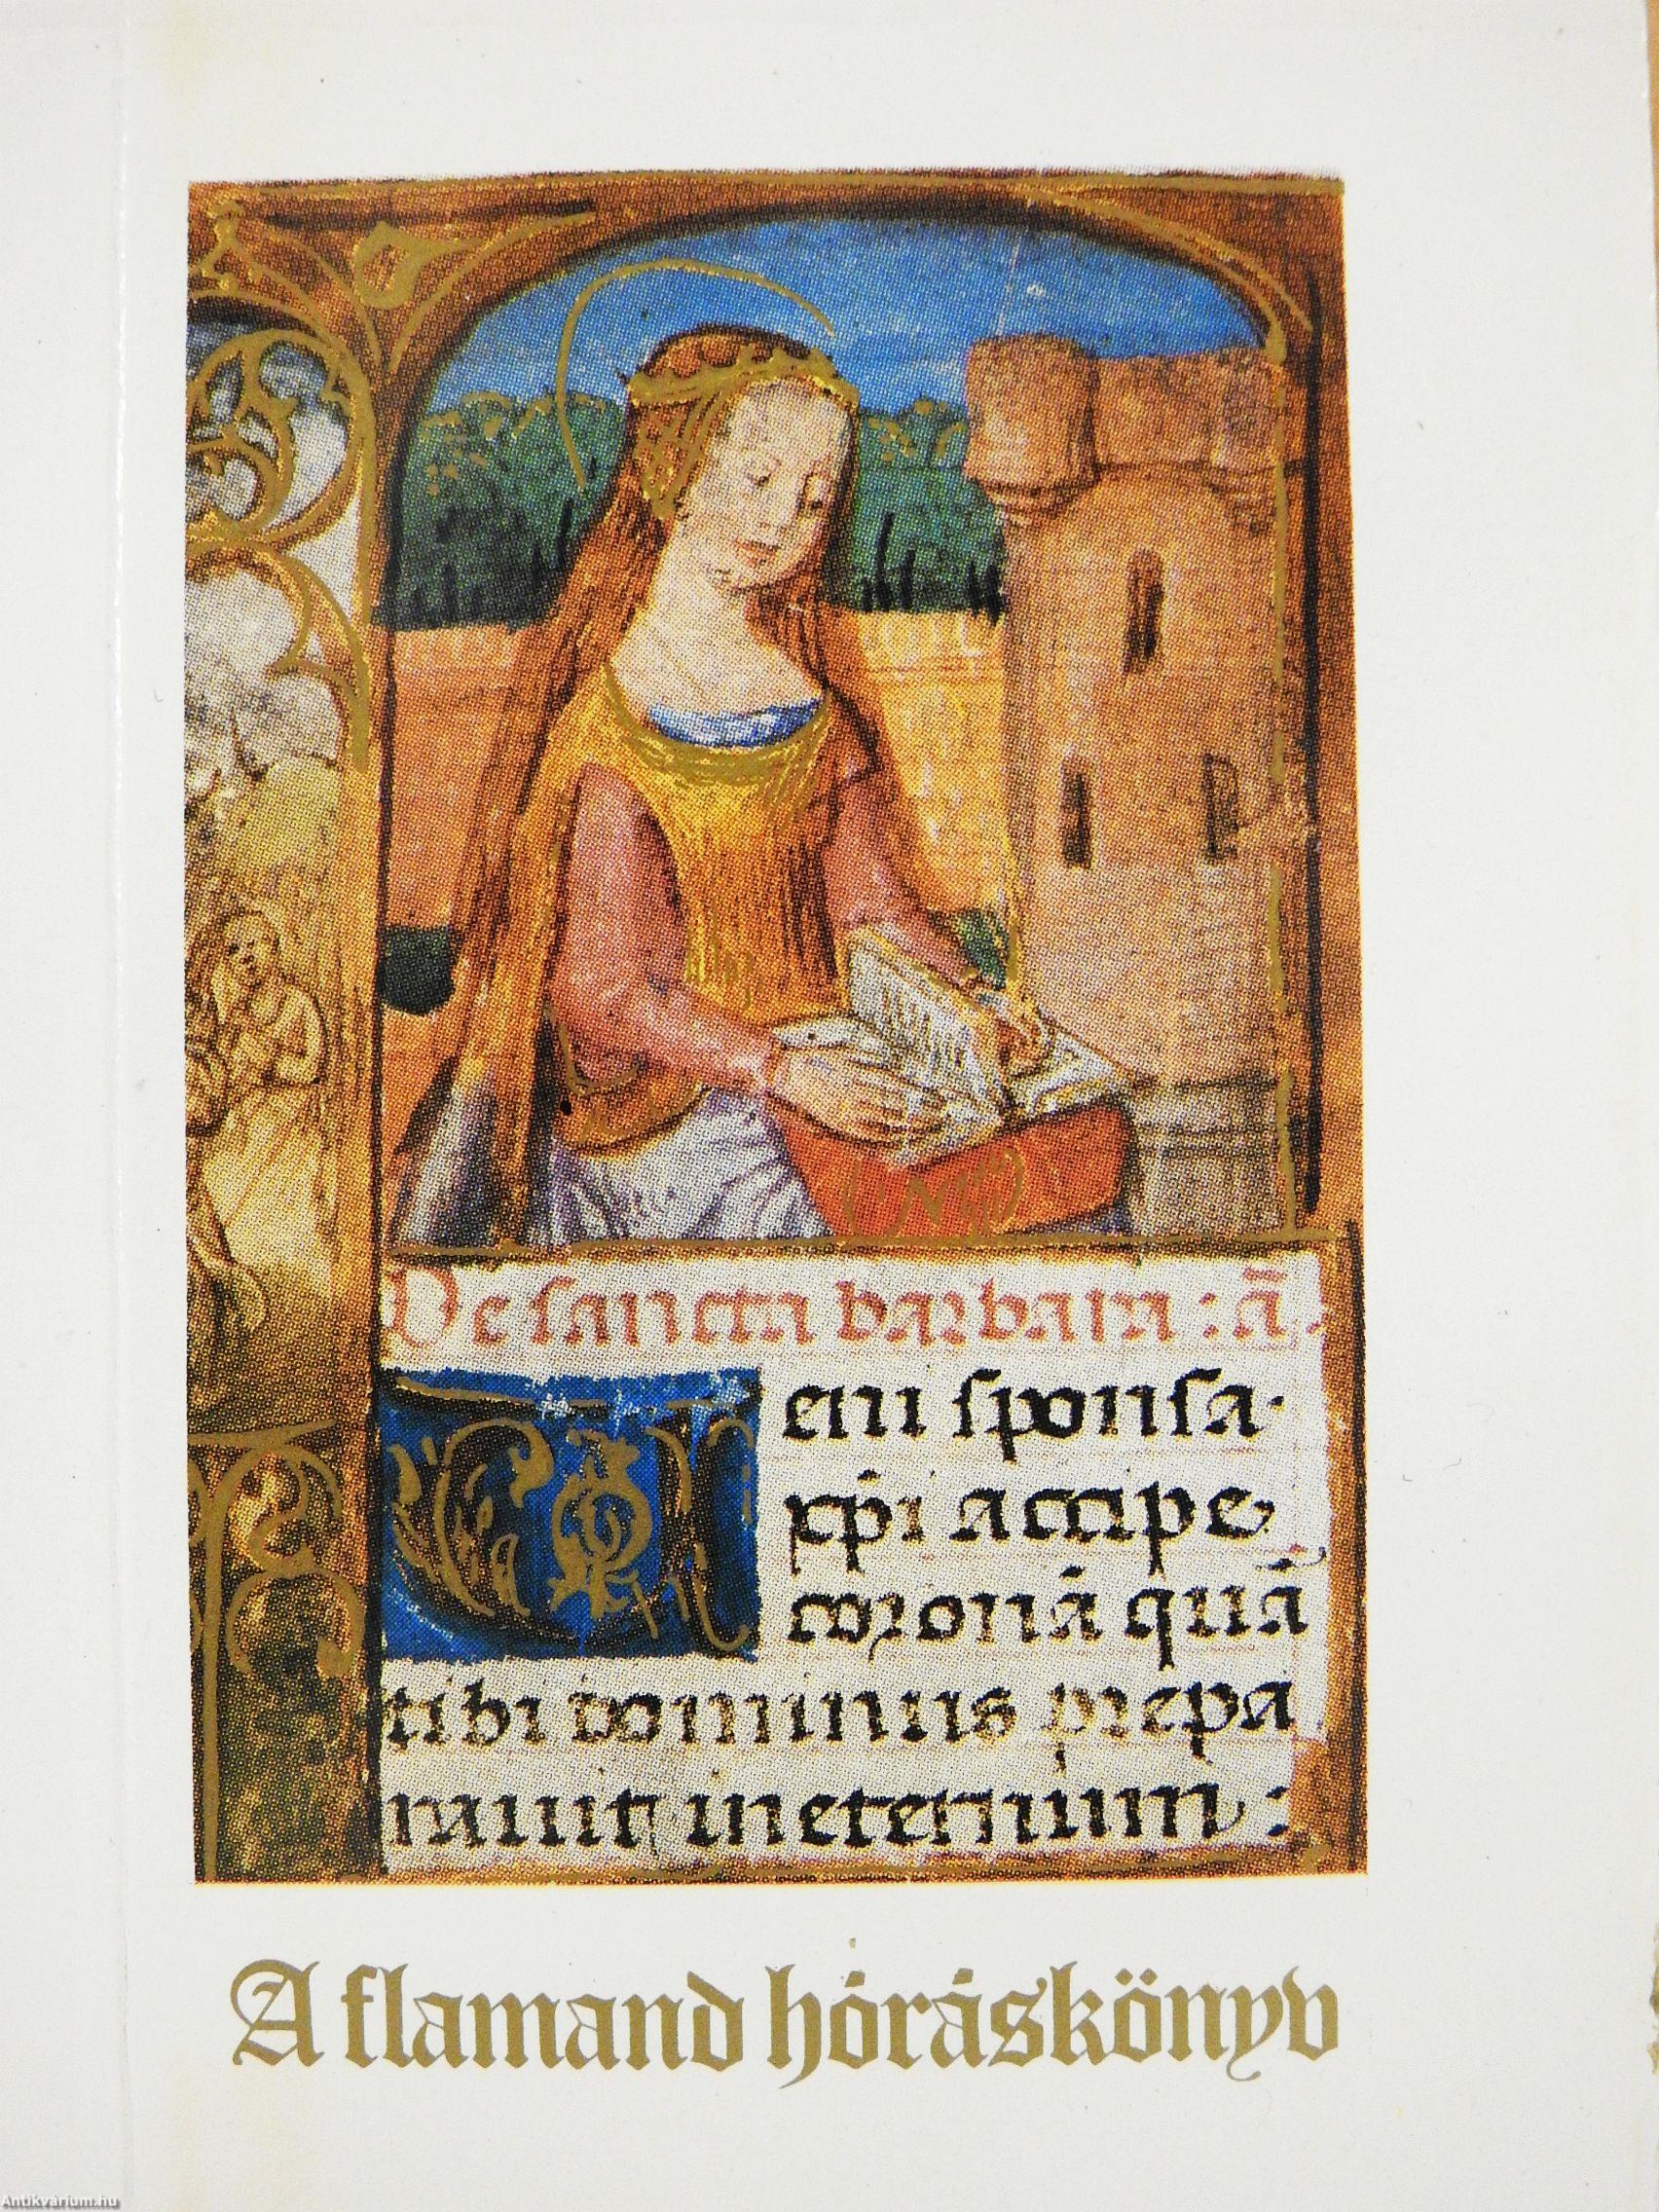 De sancta barbara : ā.
Veni sponsa.
xp̄i accipe
coronā quā
tibi dominus prepa
rauit in eternum :
A flamand hóráskönyv
Antikvárium.hu